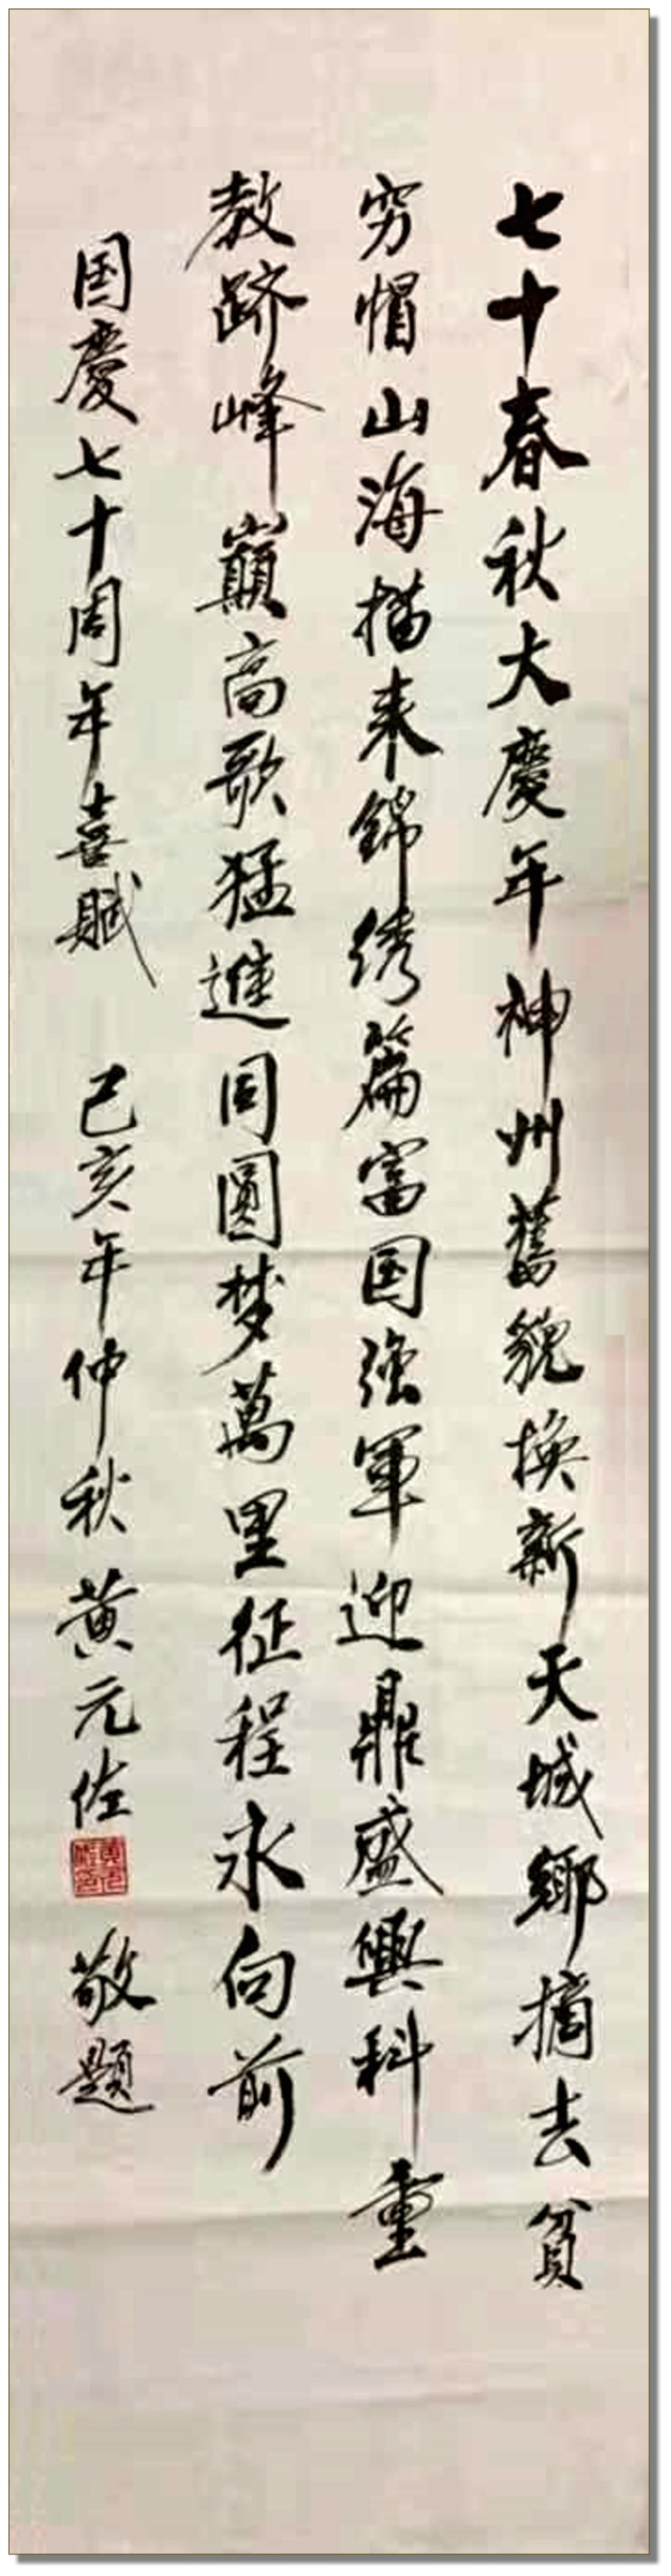 七十春秋大慶年神州舊貌換新天城鄉摘去貧
穷帽山海描来錦绣篇富国强軍迎鼎盛興科重
教跻峰巔高歌猛進同圓梦萬里征程永向前
国慶七十周年喜賦 己亥年仲秋黄元佐 敬題